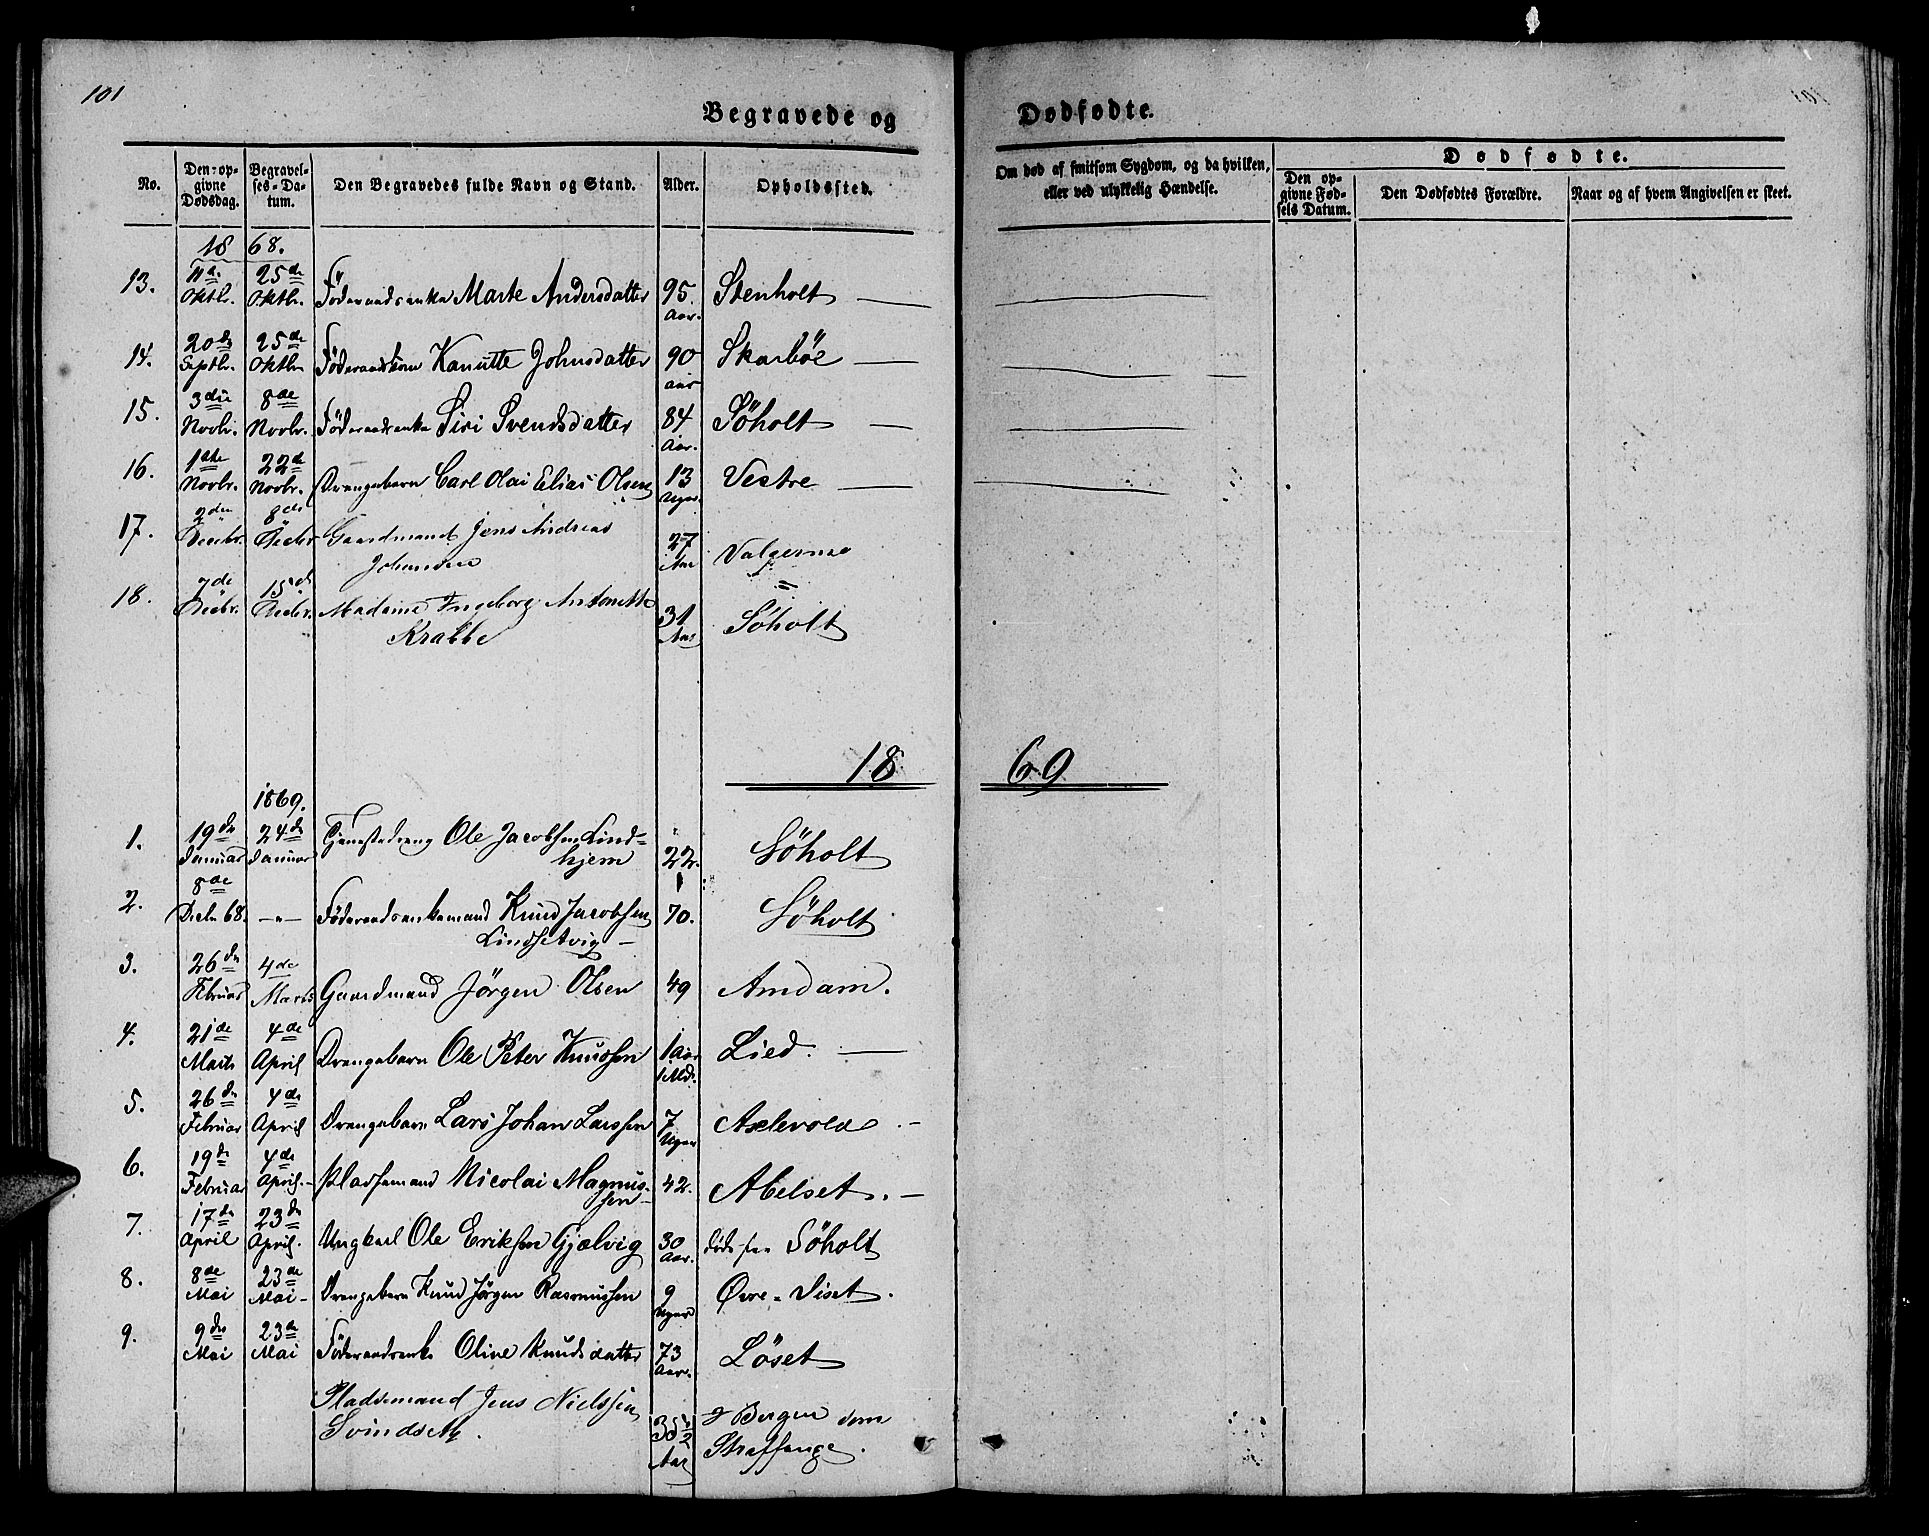 101
Begravede og Dødfødte.
No.
Den op-
givne
Dødsdag.
Begravel-
ses-Da-
tum.
Den Begravedes fulde Navn og Stand.
Alder.
Opholdssted.
Om død af smitsom Sygdom, og da hvilken,
eller ved ulykkelig Hændelse.
Dødfødte.
Den op-
givne Fød-
sels Datum.
Den Dødfødtes Forældre.
Naar og af hvem Angivelsen er skeet.
1868.
13. 11te Oktbr. 25de Oktbr. Föderaadsenke Marte Andersdatter 95 Aar. Stenholt
14. 20de Septbr. 25de Oktbr. Föderaadskone Kanutte Johnsdatter 90 aar Skarböe
15. 3die Novbr. 8de Novbr. Föderaadsenke Siri Svendsdatter 84 Aar. Söholt
16. 1ste Novbr. 22de Novbr. Drengebarn Carl Olai Elias Olsen 13 Uger Vestre
17. 2den Decbr. 8de Decbr. Gaardmand Jens Andreas
Johansen 27 Aar
18. 7de Decbr. 15de Decbr. Madame Ingeborg Antonette
Krabbe 31 Aar Söholt
1869
1869.
1. 19de Januar 24de Januar Tjenestedreng Ole Jacobsen Lind-
hjem 22. Söholt
2. 8de Decbr 68. -"- Föderaadsenkemand Knud Jacobsen 70. Söholt
Lindsetvig
3. 26de Februar 4de Marts Gaardmand Jörgen Olsen 49 Amdam.
4. 21de Marts 4de April Drengebarn Ole Peter Knudsen 1 aar 1 Md. Lied.
5. 26de Februar 4de April Drengebarn Lars Johan Larssen 7 Uger Axlevold
6. 19de Februar 4de April. Pladsemand Nicolai Magnus-
sen 42. Abelset.
7. 17de April 23de April. Ungkarl Ole Eriksen Gjælvig 30 Aar. Söholt
8. 8de Mai 23de Mai Drengebarn Knud Jörgen Rasmussen 9 Uger Øvre-Siset.
9. 9de Mai 23de Mai Föderaadsenke Olive Knudsdatter 73 Aar. Löset
Pladsemand Jens Nielssen
Svindseth. 38½ Aar I Bergen som
Straffange.